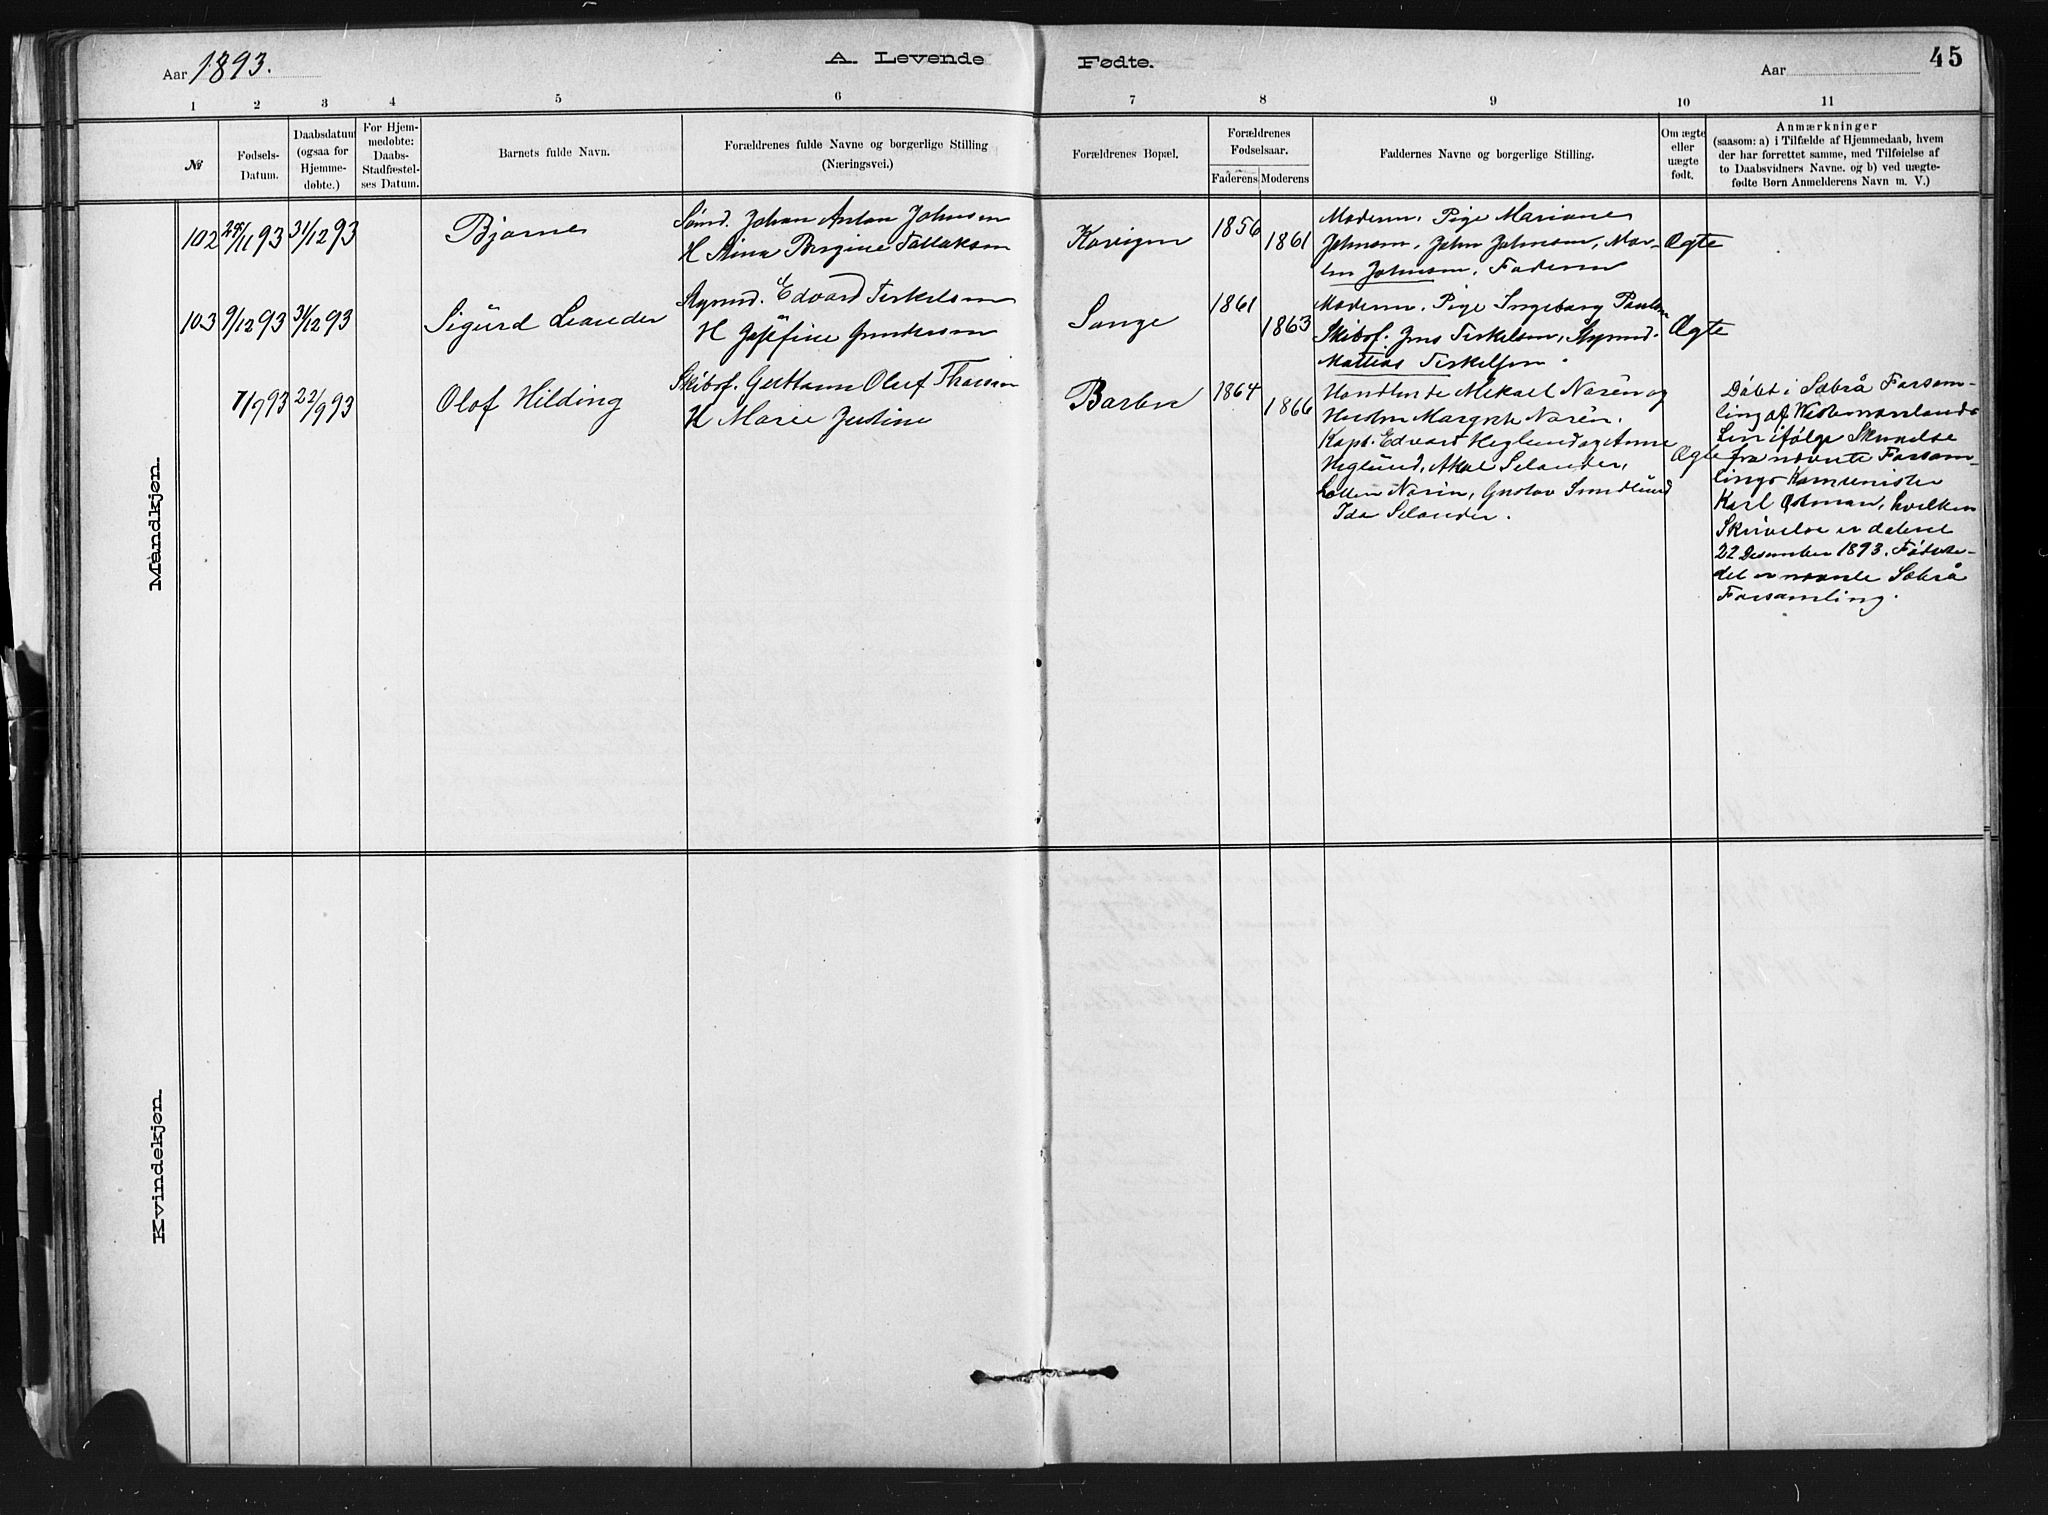 Aar 1893.
A. Levende Fødte.
Aar
45
1 2 3 4 5 6 7 8 9 10 11
№
Fødsels-
Datum.
Daabsdatum
(ogsaa for
Hjemme-
døbte.)
For Hjem-
medøbte:
Daabs-
Stadfæstel-
ses Datum.
Barnets fulde Navn.
Forældrenes fulde Navne og borgerlige Stilling
(Næringsvei.)
Forældrenes Bopæl.
Forældrenes
Fødselsaar.
Faderens Moderens
Faddernes Navne og borgerlige Stilling.
Om ægte
eller
uægte
født.
Anmærkninger
(saasom: a) i Tilfælde af Hjemmedaab, hvem
der har forrettet samme, med Tilføielse af
to Daabsvidners Navne. og b) ved uægte-
fødte Børn Anmelderens Navn m. V.)
Mandkjøn.
102 28/11 93 31/12 93
Bjarne
Sømd. Johan Anton Johnsen
H. Stina Bergine Tallaksen
1856
1861
Moderen. Pige Mariane
Johnsen. John Johnsen, Mar-
Johnsen. Faderen
Ægte
103 9/12 93 31/12 93
Sigurd Leander
Styrmd. Edvard Terkelsen
H. Josefine Gundersen
Songe
1861
1863
Moderen. Pige Ingeborg
Skibsf. Jens Terkelsen, Styrmd.
Mattias Terkelsen.
Ægte
7/9 93 22/9 93
Olof Hilding
Skibsf. Oluf
H Marie Justine
Barbu
1864
1866
Handlende Mikael Norén og
Hustru Margrete Norén.
Kapt. Edvard Heglund og Anna
Heglund, Axel Selander,
Norén, Gustav
Ida Selander.
Ægte
Døbt i Säbrå Forsam-
ling af Westernorrlands
Len ifølge Skrivelse
fra nævnte Forsam-
lings Komminister
Karl Östman, hvilken
Skrivelse er dateret
22 Desember 1893. Fødeste-
det er nævnte Säbrå
Forsamling.
Kvindekjøn.